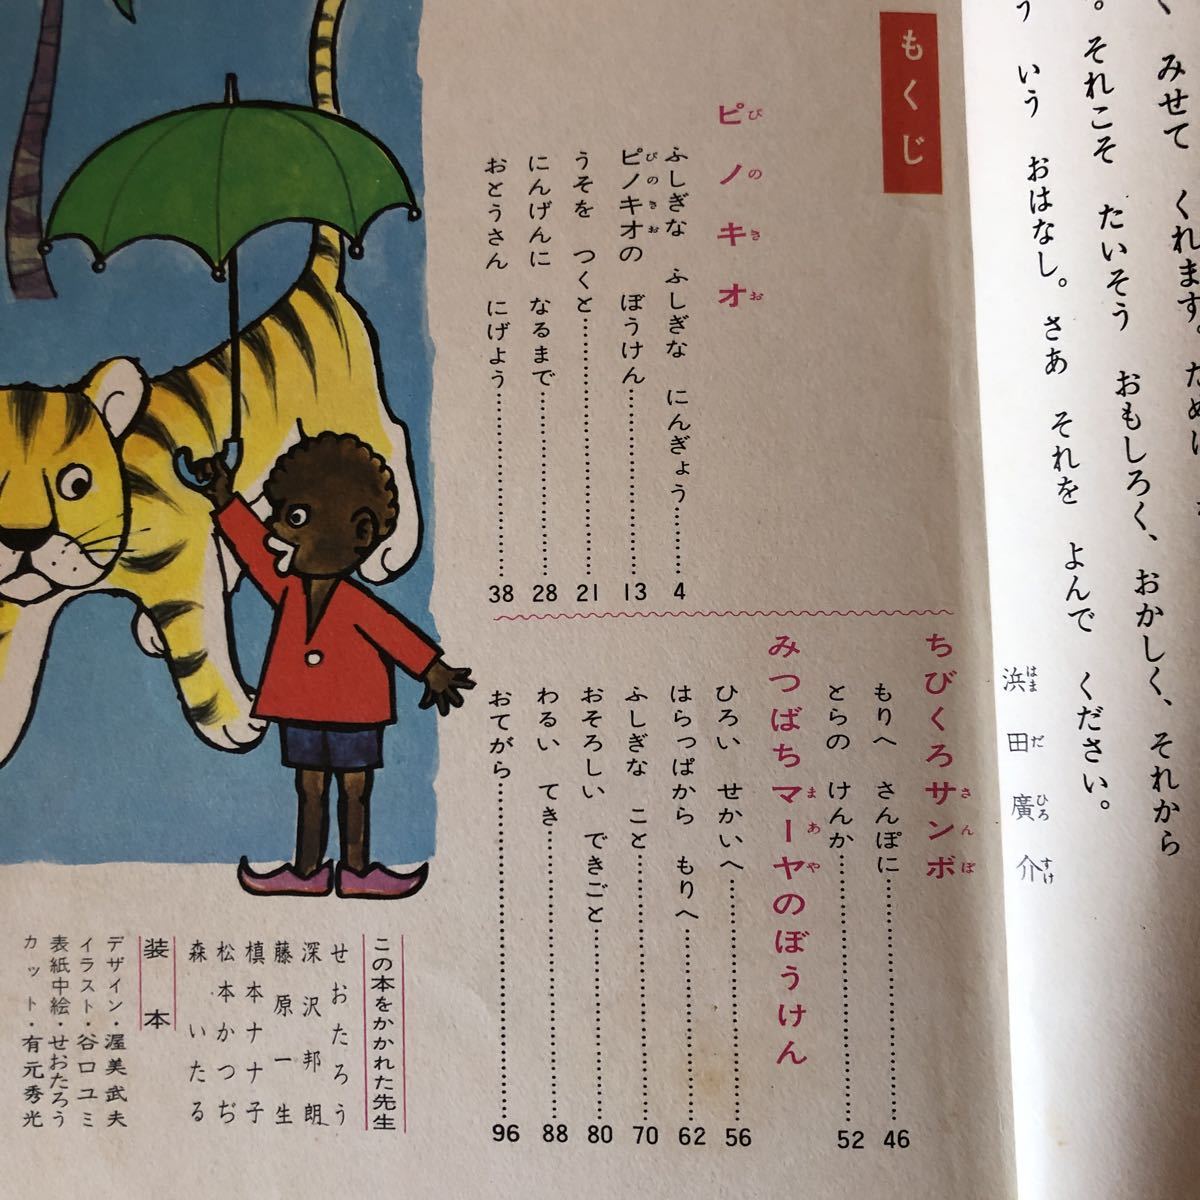 く みせて くれます。ために
。それこそ たいそう おもしろく、おかしく、それから
う いう おはなし。さあ それを よんで ください。
浜田廣介
はまだひろすけ
もくじ
ピノキオ
ぴのきお
ふしぎな ふしぎな にんぎょう……… 4
ピノキオの ぼうけん……………… 13
ぴのきお
うそを つくと……………… 21
にんげんに なるまで……………… 28
おとうさん にげよう……………… 38
ちびくろサンボ
さんぼ
もりへ さんぽに……………… 46
とらの けんか……………… 52
みつばちマーヤのぼうけん
まあや
ひろい せかいへ……………… 56
はらっぱから もりへ……………… 62
ふしぎな こと……………… 70
おそろしい できごと……………… 80
わるい てき……………… 88
おてがら……………… 96
この本をかかれた先生
せおたろう
深沢邦朗
藤原一生
槙本ナナ子
松本かつぢ
森いたる
装本
デザイン・渥美武夫
イラスト・谷口ユミ
表紙中絵・せおたろう
カット・有元秀光